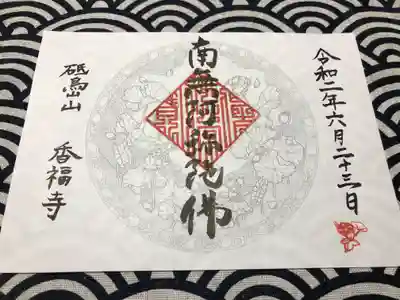 令和二年六月二十三日
南無阿弥陀佛
砥島山
香福寺